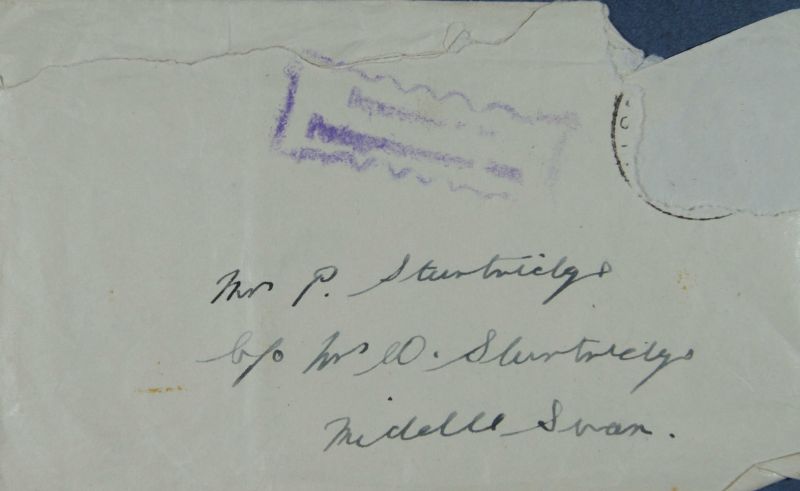 Mrs P. Sturtridge
C/o Mrs W. Sturtridge
Middle Swan.